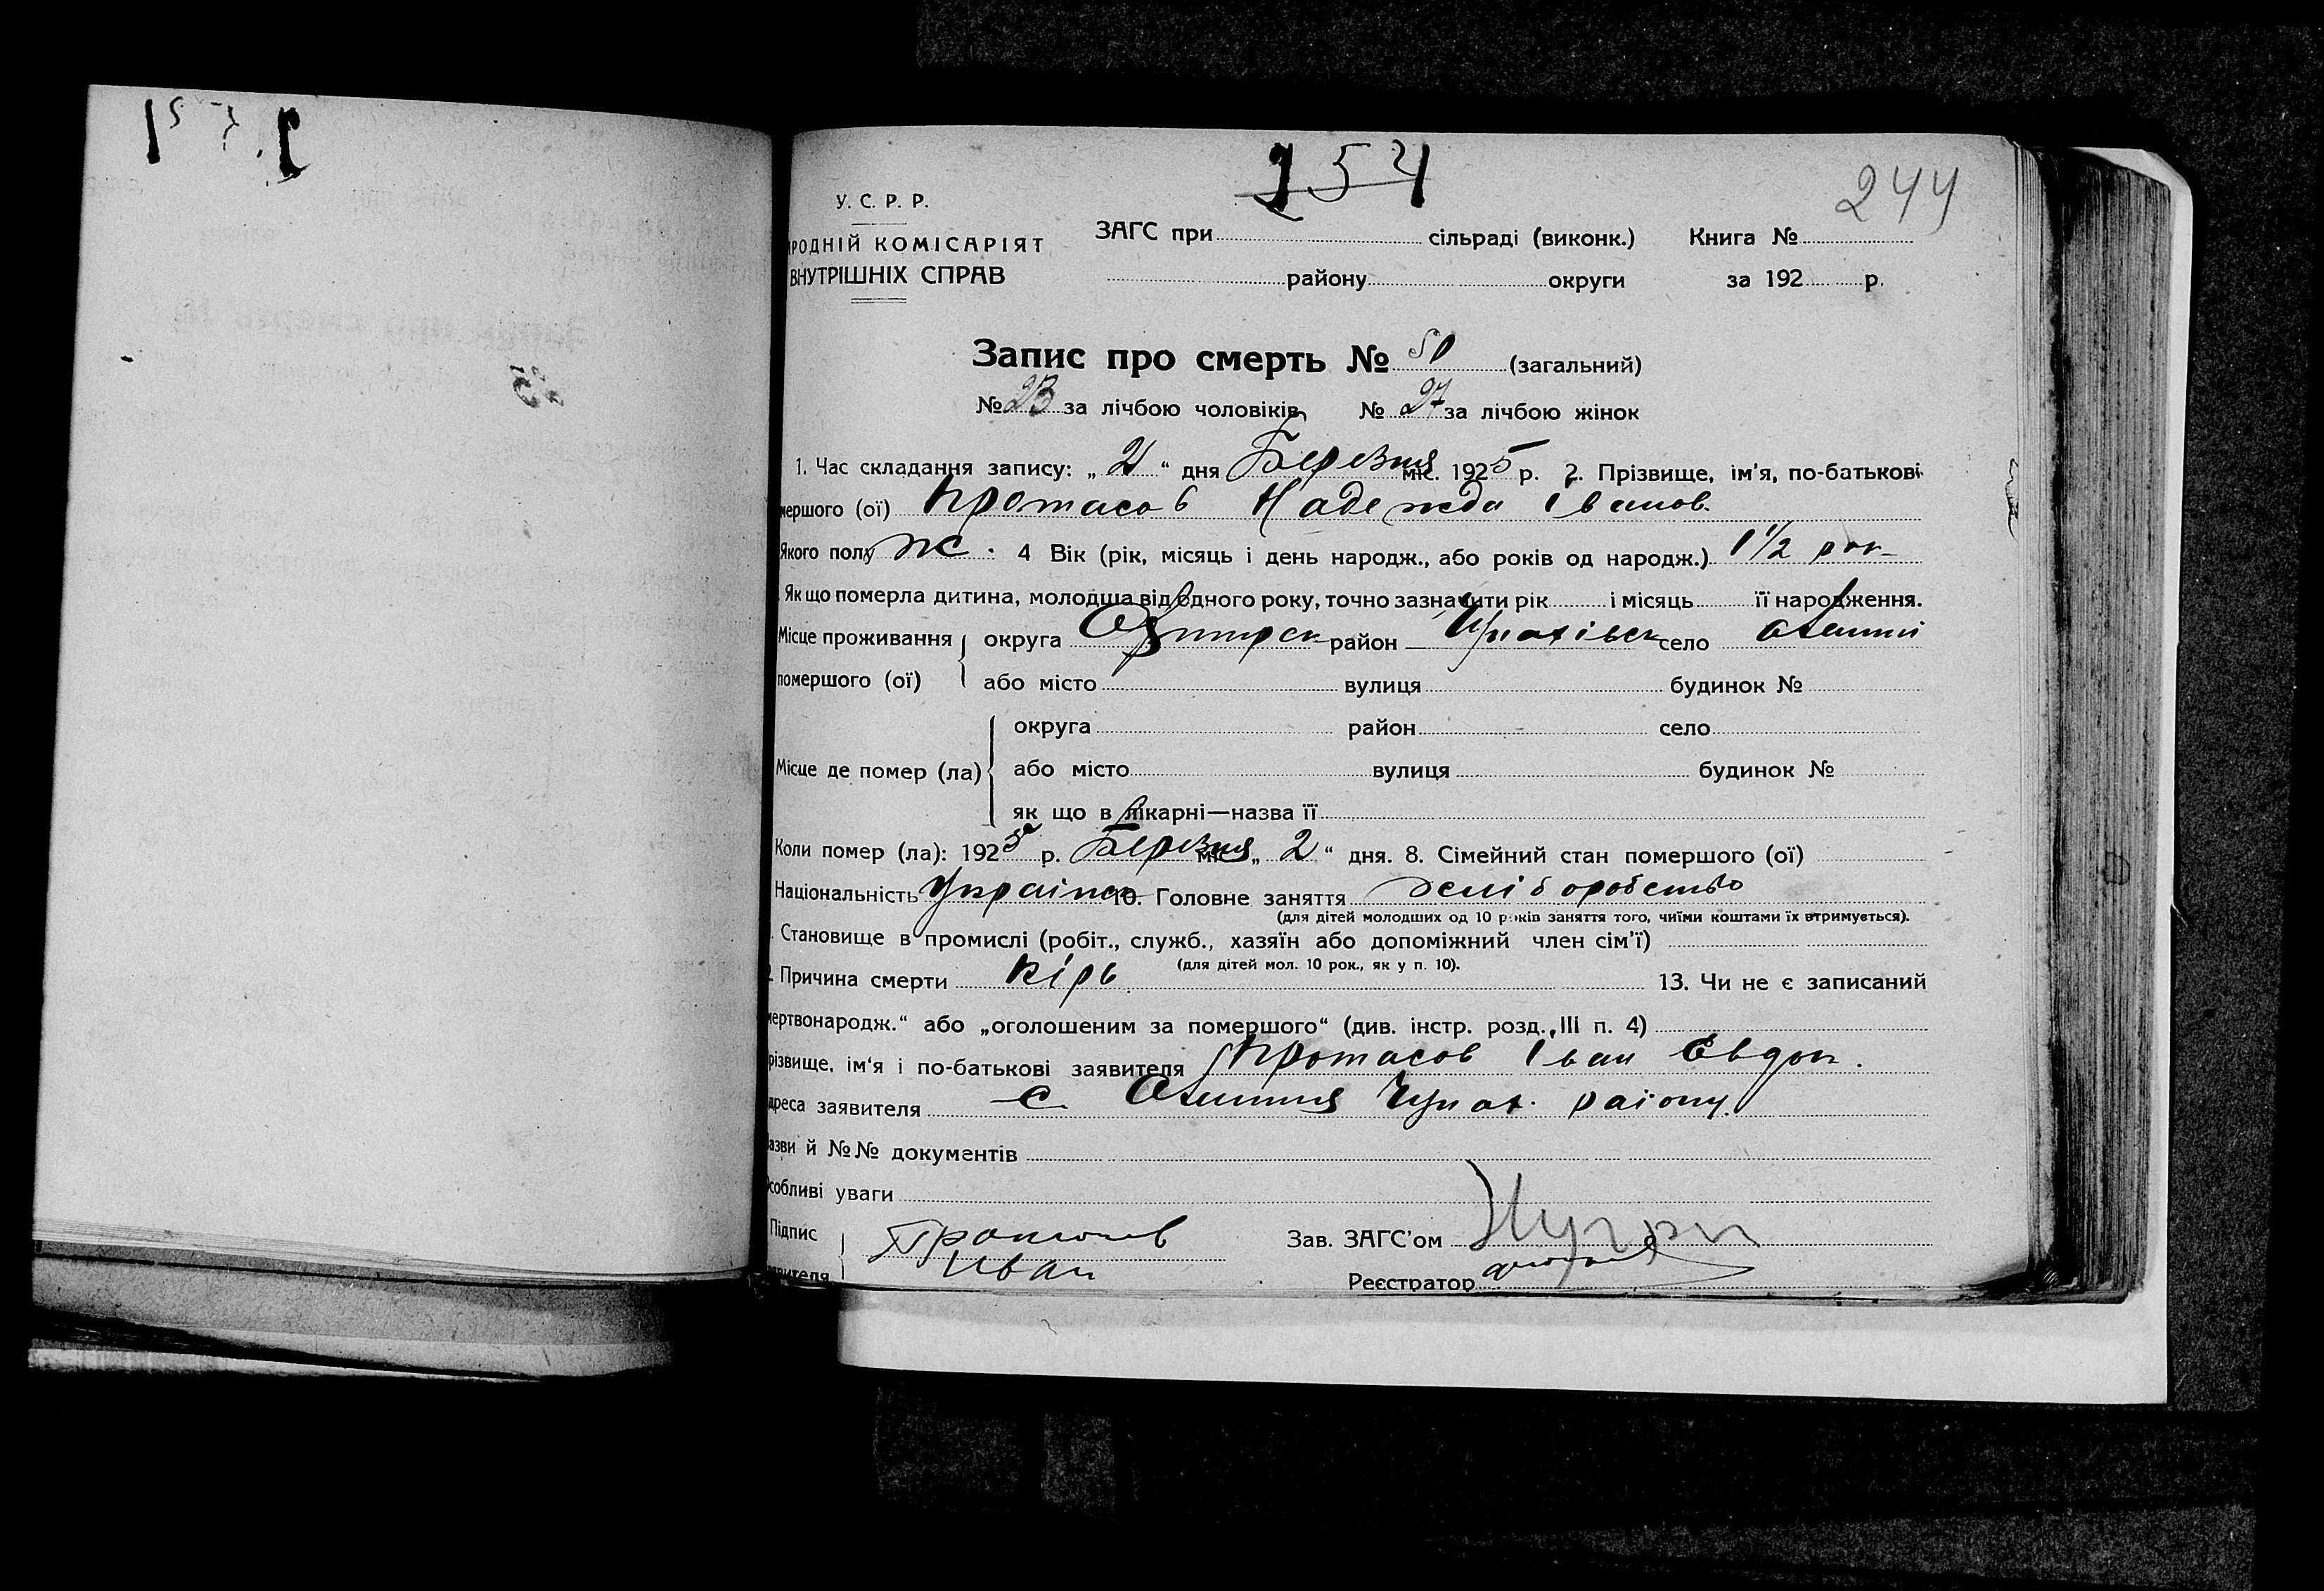 254
244
У. С. Р. Р.
РОДНІЙ КОМІСАРІЯТ
ВНУТРІШНІХ СПРАВ
ЗАГС при сільраді (виконк.) Книга №
району округи за 192 р.
Запис про смерть № 50 (загальний)
№ 23 за лічбою чоловіків, № 27 за лічбою жінок
1. Час складання запису: „ “ дня Березня міс. 1925 р. 2. Прізвище, ім’я, по-батькові
мершого (ої) Протасов Надежда Іванов.
Якого полу ж. 4 Вік (рік, місяць і день народж., або років од народж.) 1 1/2 рок
Як що померла дитина, молодша від одного року, точно зазначити рік і місяць її народження.
Місце проживання округа район село
помершого (ої) або місто вулиця будинок №
округа район село
Місце де помер (ла) або місто вулиця будинок №
як що в лікарні—назва її
Коли помер (ла): 1925 р. Березня міс. „ 2 “ дня. 8. Сімейний стан помершого (ої)
Національність Українка 10. Головне заняття хліборобство
(для дітей молодших од 10 років заняття того, чиїми коштами їх втримується).
Становище в промислі (робіт., служб., хазяїн або допоміжний член сім’ї)
(для дітей мол. 10 рок., як у п. 10).
Причина смерти Кірь 13. Чи не є записаний
мертвонародж.“ або „оголошеним за помершого“ (див. інстр. розд. III п. 4)
різвище, ім‘я і по-батькові заявителя Протасов Іван Євдок.
дреса заявителя с. району.
азви й №№ документів
собливі уваги
Підпис Протасов Зав. ЗАГС’ом
явителя Иван Реєстратор